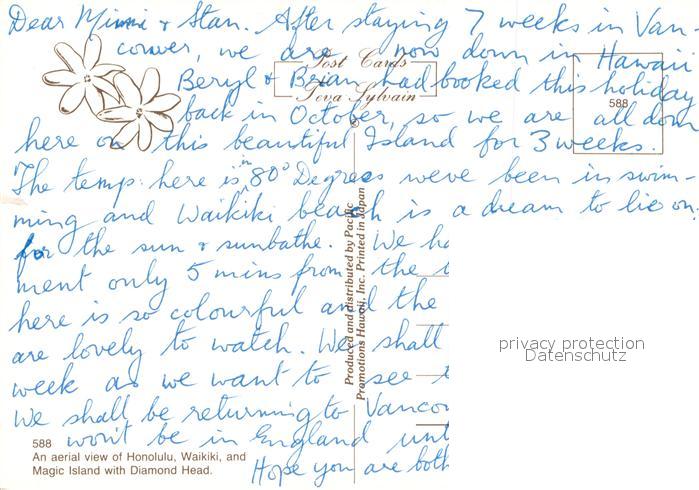 Dear Minni & Stan. After staying 7 weeks in Van-
couver, we are now down in Hawaii
Post Cards
Beryl & Brian had booked this holiday
Teva Sylvain
588
back in October, so we are all down
here on this beautiful Island for 3 weeks.
The temp: here is in 80° Degrees weve been in swim-
ming and Waikiki beach is a dream to lie on.
for the sun & sunbathe. We ha
ment only 5 mins from the
here is so colourful and the
are lovely to watch. We shall
week as we want to see
We shall be returning to Vancou
wont be in England unt
Hope you are both
588
An aerial view of Honolulu, Waikiki, and
Magic Island with Diamond Head.
Produced and distributed by Pacific
Promotions Hawaii, Inc. Printed in Japan
privacy protection
Datenschutz